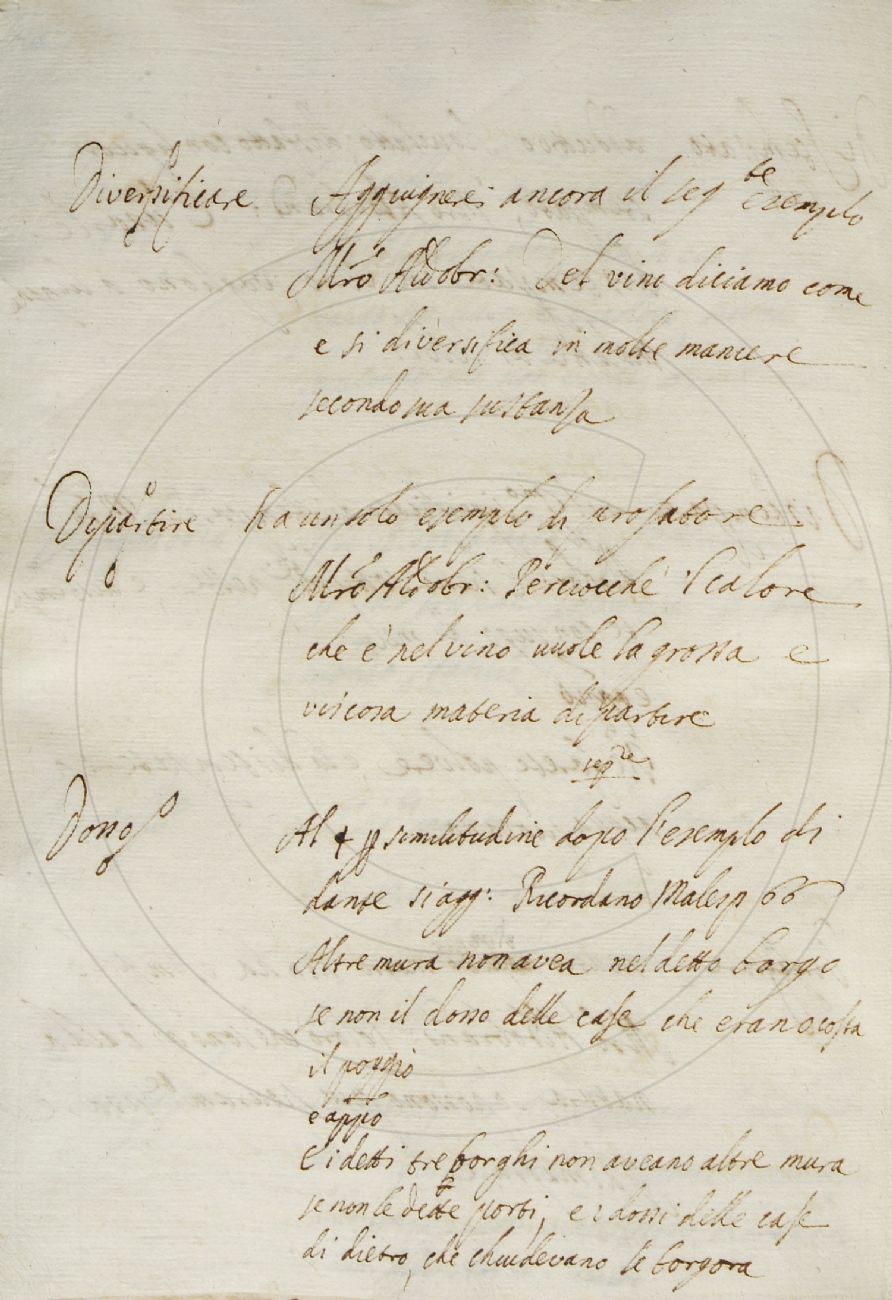 Diversificare Aggiugnerei ancora il segte esemplo
Mro Aldobr: Del vino diciamo come
e si diversifica in molte maniere
secondo sua sustanza
Dispartire ha un solo esemplo di prosatore
Mro Aldobr: Perciocchè 'l calore
che è nel vino vuole la grossa e
viscosa materia dispartire
segte
Dosso Al § similitudine dopo l'esemplo di
dante si agg: Ricordano Malesp 66
Altre mura non avea nel detto borgo
se non il dosso delle case che eran acosta
il poggio
e appo
E i detti tre borghi non aveano altre mura
se non le dette porti, e i dossi delle case
di dietro, che chiudevano le borgora